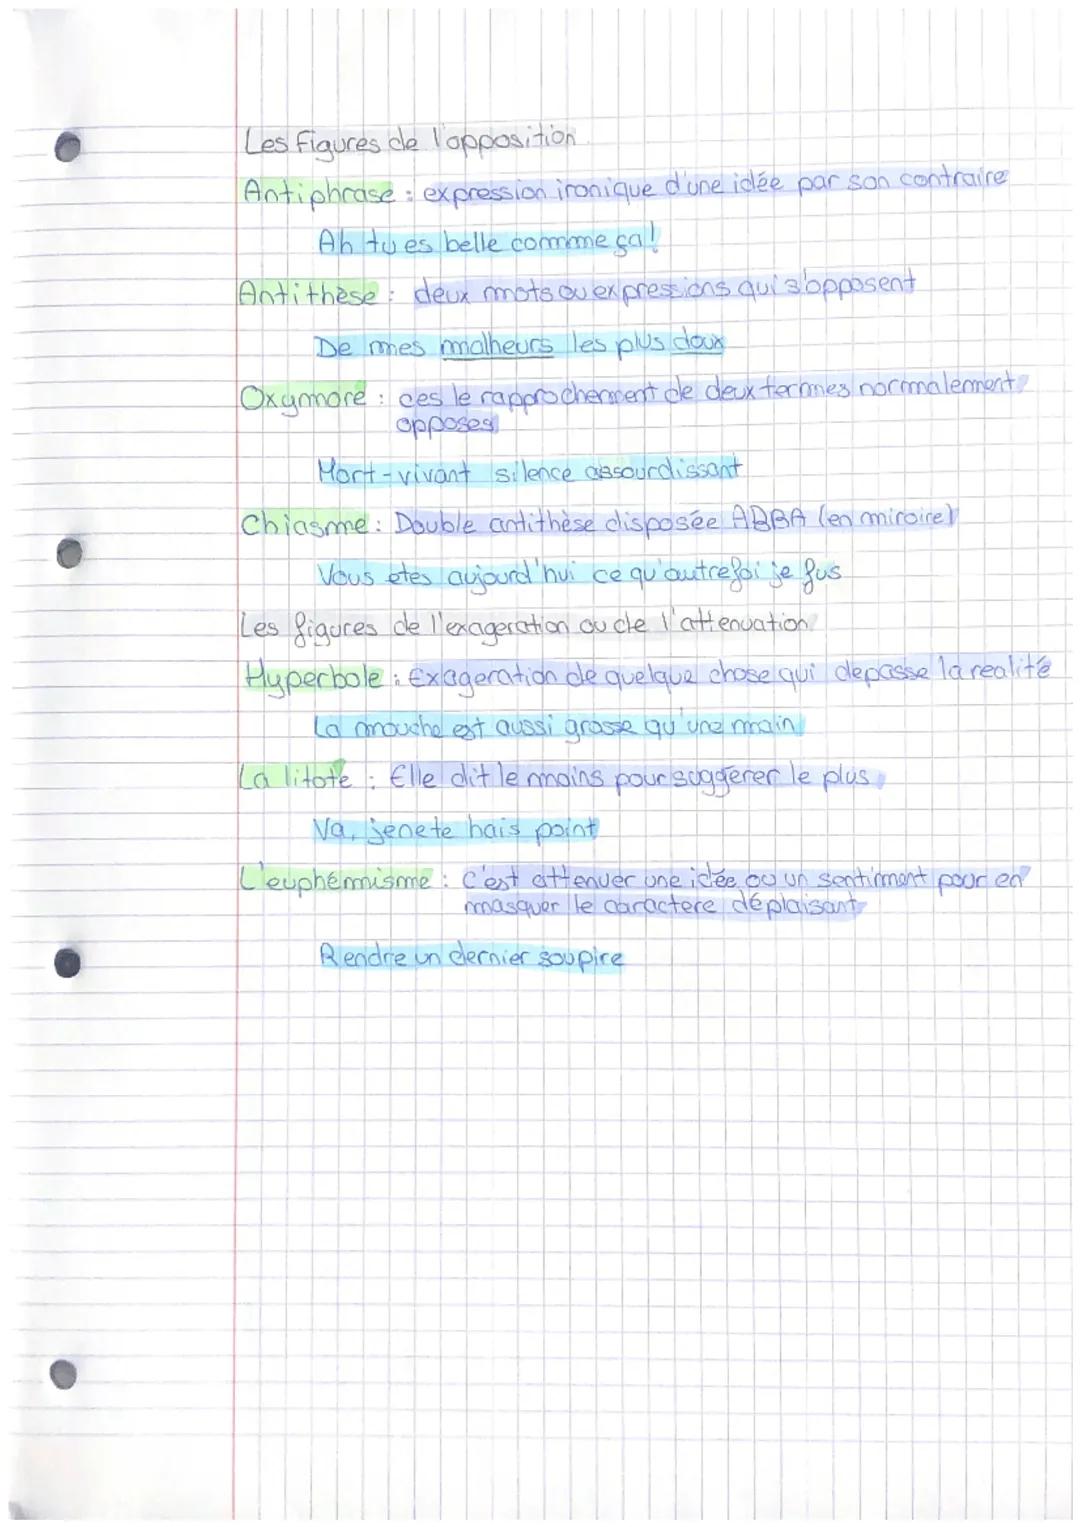 Les Figures de l'opposition.
Antiphrase : expression ironique d'une idée par son contraire
Ah tu es belle commme ça!
Antithèse : deux mots ou expressions qui s'opposent
De mes malheurs les plus doux
Oxymore : ces le rapprochement de deux termes normalement
opposes
Mort-vivant silence assourdissant
Chiasme : Double antithèse disposée ABBA (en miroire)
Vous etes aujourd'hui ce qu'autrefoi je fus
Les figures de l'exageration ou de l'attenuation
Hyperbole : Exageration de quelque chose qui depasse la realité
La mouche est aussi grosse qu'une main
La litote : Elle dit le moins pour suggérer le plus
Va, je ne te hais point
L'euphémisme : C'est attenuer une idée ou un sentiment pour en
masquer le caractere déplaisant
Rendre un dernier soupire